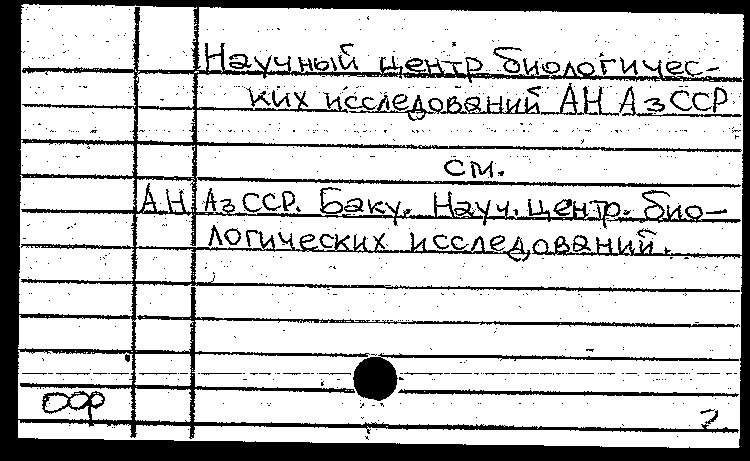 Научный центр биологичес-
ких исследований АН АзССР
см.
АН АзССР. Баку. Науч. центр. био-
логических исследований.
оор